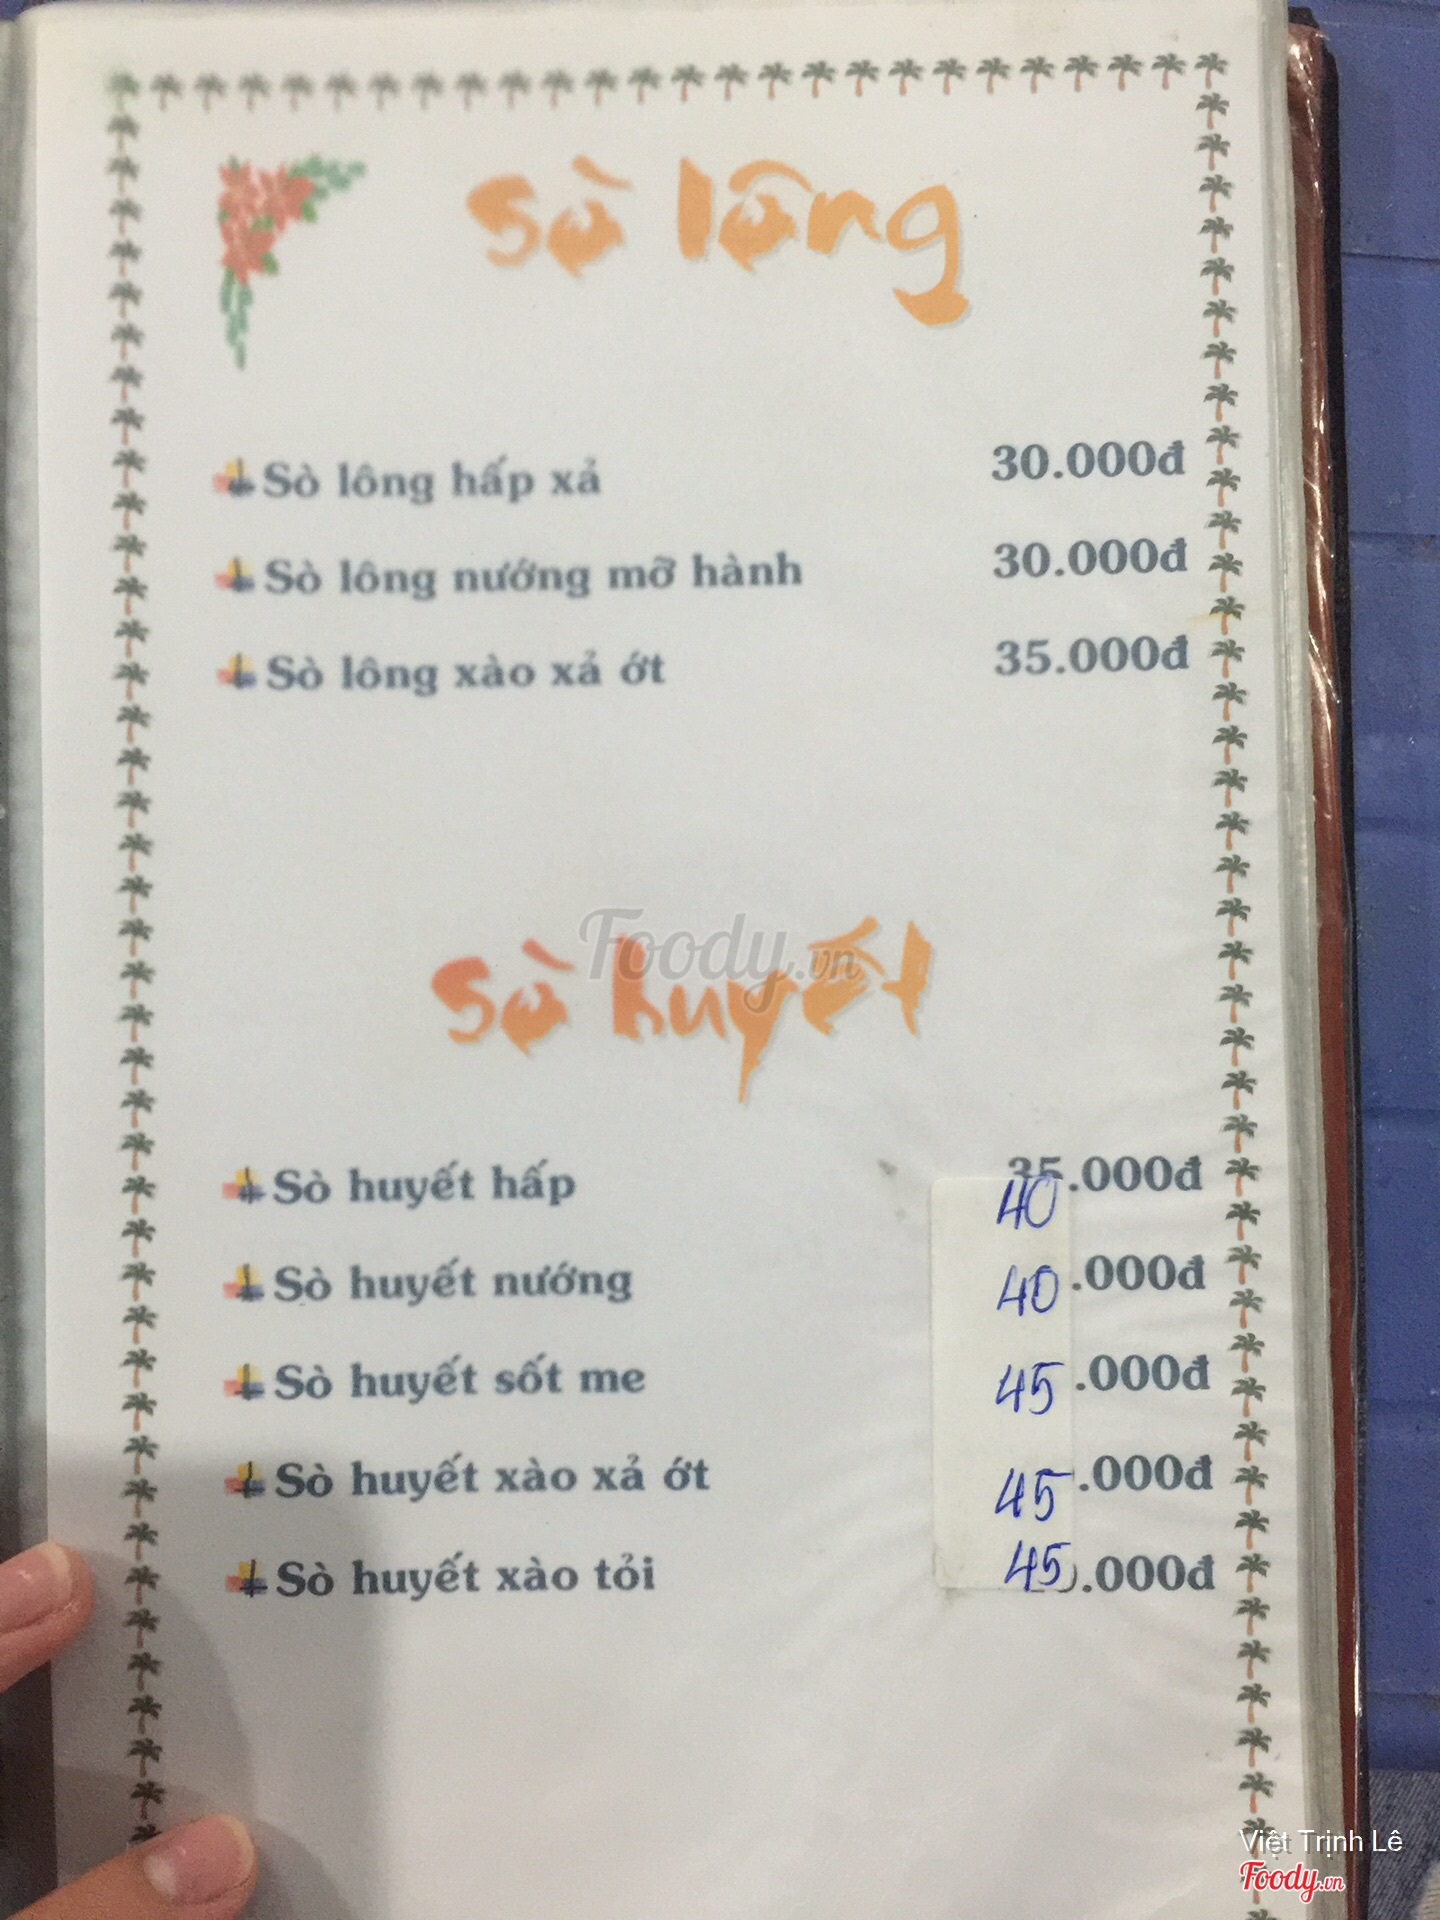 Sò lông
Sò lông hấp xả 30.000đ
Sò lông nướng mỡ hành 30.000đ
Sò lông xào xả ớt 35.000đ
Foody.vn
Sò huyết
Sò huyết hấp 35.000đ
40
Sò huyết nướng 40 .000đ
Sò huyết sốt me 45 .000đ
Sò huyết xào xả ớt 45 .000đ
Sò huyết xào tỏi 45 .000đ
Việt Trịnh Lê
Foody.vn